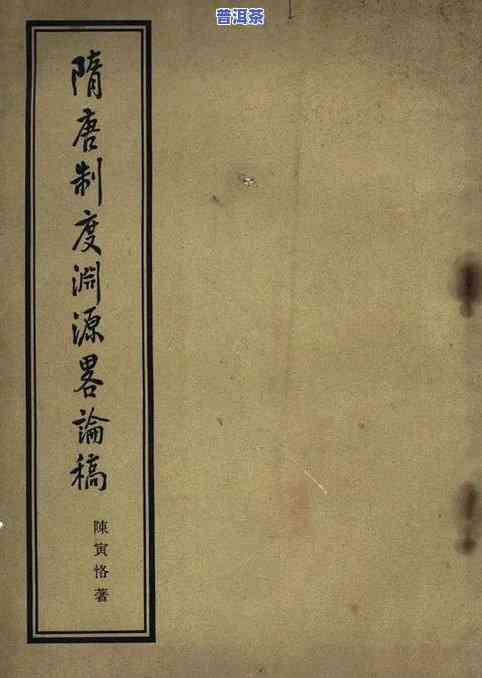 普洱茶
隋唐制度淵源畧論稿
陳寅恪著